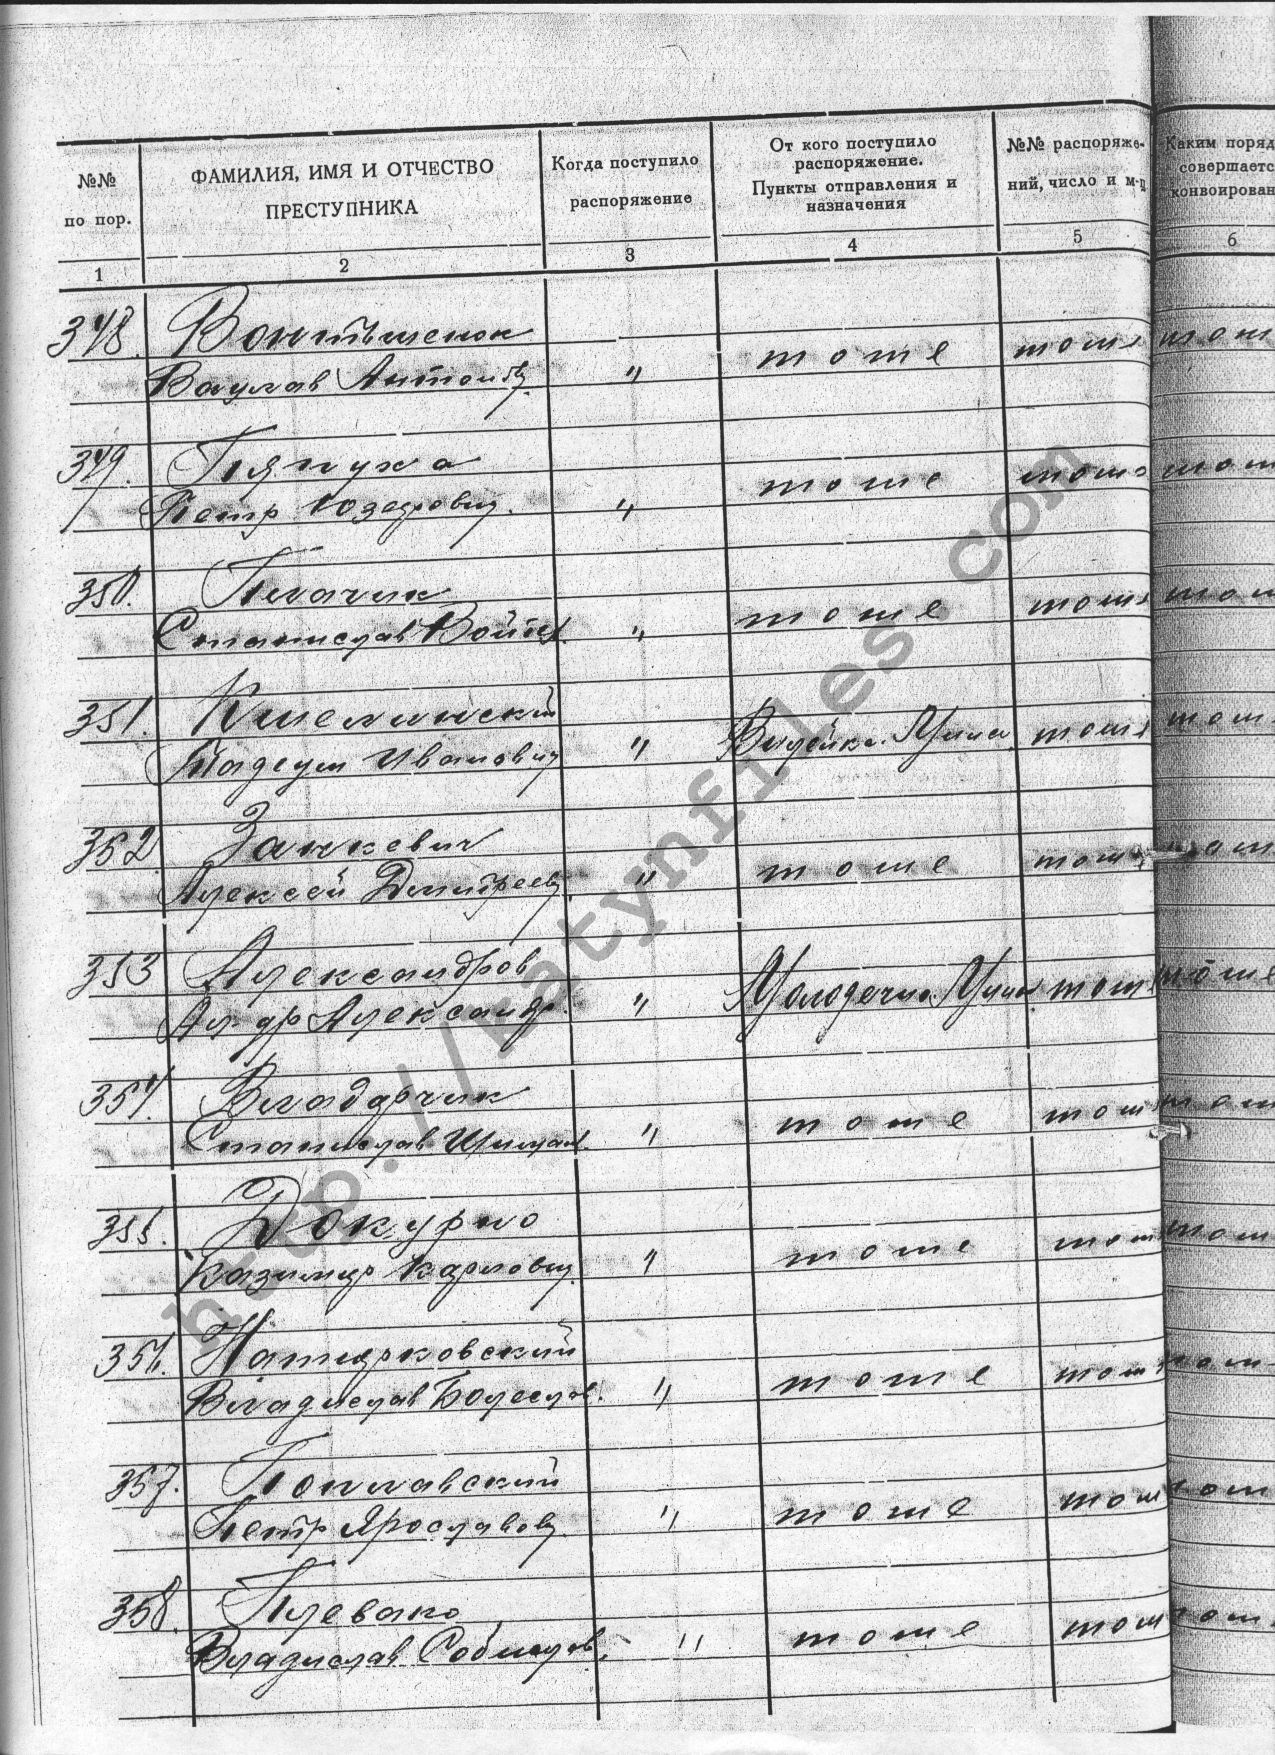 №№
по пор.
ФАМИЛИЯ, ИМЯ И ОТЧЕСТВО
ПРЕСТУПНИКА
Когда поступило
распоряжение
От кого поступило
распоряжение.
Пункты отправления и
назначения
№№ распоряже-
ний, число и м-ц
Каким поряд
совершаетс
конвоирован
1 2 3 4 5 6
348. Войтышенок
Вацлав Антонов. " тоже тоже тож
349. Пляпуха
Петр Юзефович. " тоже тоже тож
350. Плачик
Станислав Войцех. " тоже тоже тож
351.
Тадеуш Иванович " Вилейка Минск. тоже тож
352 Занкевич
Алексей Дмитреев. " тоже тоже тож
353 Александров
Ал-др Александр. " Молодечно Минск тоже тоже
354. Владарчик
Станислав Шиман. " тоже тоже тож
355. Докурно
Казимир Карлович. " тоже тож тож
356.
Владислав Болеслав. " тоже тож тож
357. Поплавский
Петр Ярославов. " тоже тож тож
358. Плевако
Владислав " тоже тож тож
http://katynfiles.com